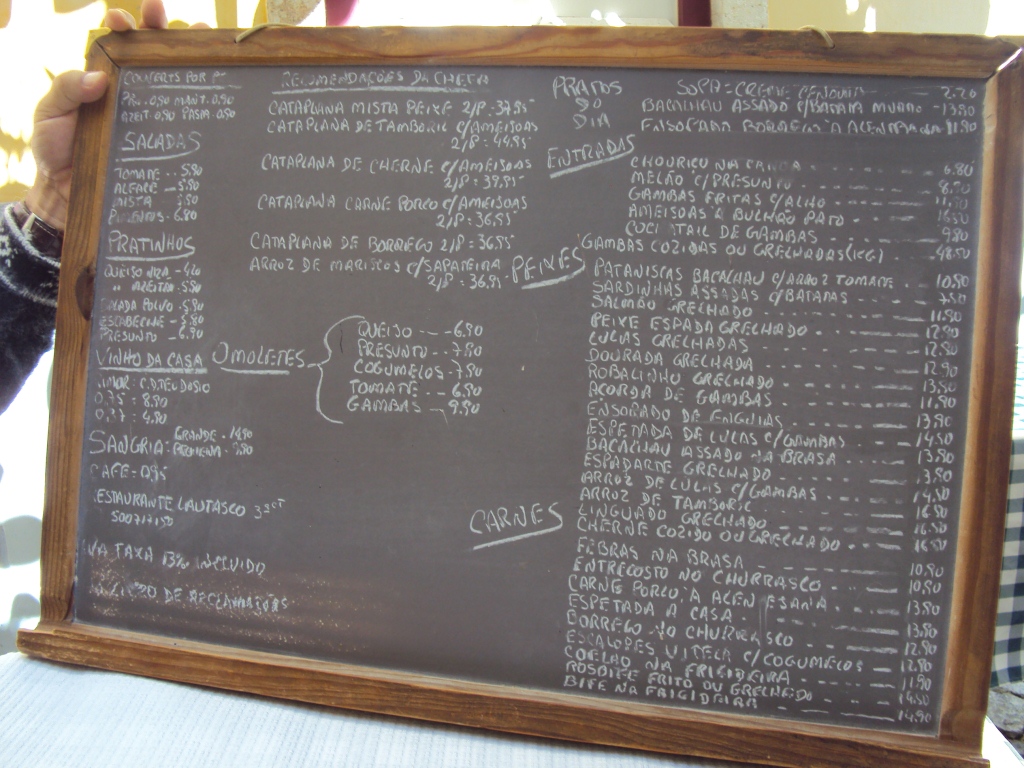 COUVERTS POR P
PÃO.. 0,90 MANT. 0,90
AZEIT. 0,90 PASTA 0,90
SALADAS
TOMATE .. 5.90
ALFACE - 5.90
MISTA 5.90
PIMENTOS - 6.80
PRATINHOS
QUEIJO
" AZEITÃO - 5.90
SALADA POLVO - 5.90
ESCABECHE - 5.90
PRESUNTO - 6.90
VINHO DA CASA
0.75 = 8.90
0.37 = 4.80
SANGRIA: GRANDE - 14.90
PEQUENA - 9.90
CAFÉ - 0.95
RESTAURANTE LAUTASCO 3ª CT
500717150
IVA TAXA 13% INCLUIDO
LIVRO DE RECLAMAÇÕES
RECOMENDAÇÕES DA CHEFA
CATAPLANA MISTA PEIXE 2/P = 37.95
CATAPLANA DE TAMBORIL C/AMEIJOAS
2/P = 44.95
CATAPLANA DE CHERNE C/AMEIJOAS
2/P = 39.95
CATAPLANA CARNE PORCO C/AMEIJOAS
2/P = 36.95
CATAPLANA DE BORREGO 2/P = 36.95
ARROZ DE MARISCOS C/SAPATEIRA
2/P = 36.95
OMOLETES
QUEIJO --- 6.90
PRESUNTO -- 7.90
COGUMELOS - 7.90
TOMATE -- 6.90
GAMBAS -- 9.90
PRATOS
DO
DIA
SOPA = CREME CENOURA -- 2.20
BACALHAU ASSADO C/BATATA MURRO - 13.90
ENSOPADO BORREGO A ALENTEJANA 11.90
ENTRADAS
CHOURIÇO NA CANOA - - - 6.80
MELÃO C/PRESUNTO - - - 8.90
GAMBAS FRITAS C/ALHO - - -
AMEIJOAS A BULHÃO PATO - - -
COCKTAIL DE GAMBAS - - - 9.80
GAMBAS COZIDAS OU GRELHADAS (KG) - 48.50
PEIXES
PATANISCAS BACALHAU C/ARROZ TOMATE - 10.90
SARDINHAS ASSADAS C/BATATAS - - -
SALMÃO GRELHADO - - - 11.90
PEIXE ESPADA GRELHADO - - - 12.90
LULAS GRELHADAS - - - 12.90
DOURADA GRELHADA - - - 12.90
ROBALINHO GRELHADO - - - 13.90
AÇORDA DE GAMBAS - - - 11.90
ENSOPADO DE ENGUIAS - - - 13.90
ESPETADA DE LULAS C/GAMBAS - - - 14.50
BACALHAU ASSADO NA BRASA - - - 13.90
ESPADARTE GRELHADO - - - 13.90
ARROZ DE LULAS C/GAMBAS - - - 14.50
ARROZ DE TAMBORIL - - - 16.50
LINGUADO GRELHADO - - - 16.50
CHERNE COZIDO OU GRELHADO - - - 16.50
CARNES
FEBRAS NA BRASA - - - 10.90
ENTRECOSTO NO CHURRASCO - - - 10.90
CARNE PORCO A ALENTEJANA - - - 13.90
ESPETADA A CASA - - - 13.90
BORREGO NO CHURRASCO - - - 12.90
ESCALOPES VITELA C/COGUMELOS - - - 12.90
COELHO NA FRIGIDEIRA - - - 11.90
ROSBIFE FRITO OU GRELHADO - - - 14.50
BIFE NA FRIGIDEIRA - - - 14.90